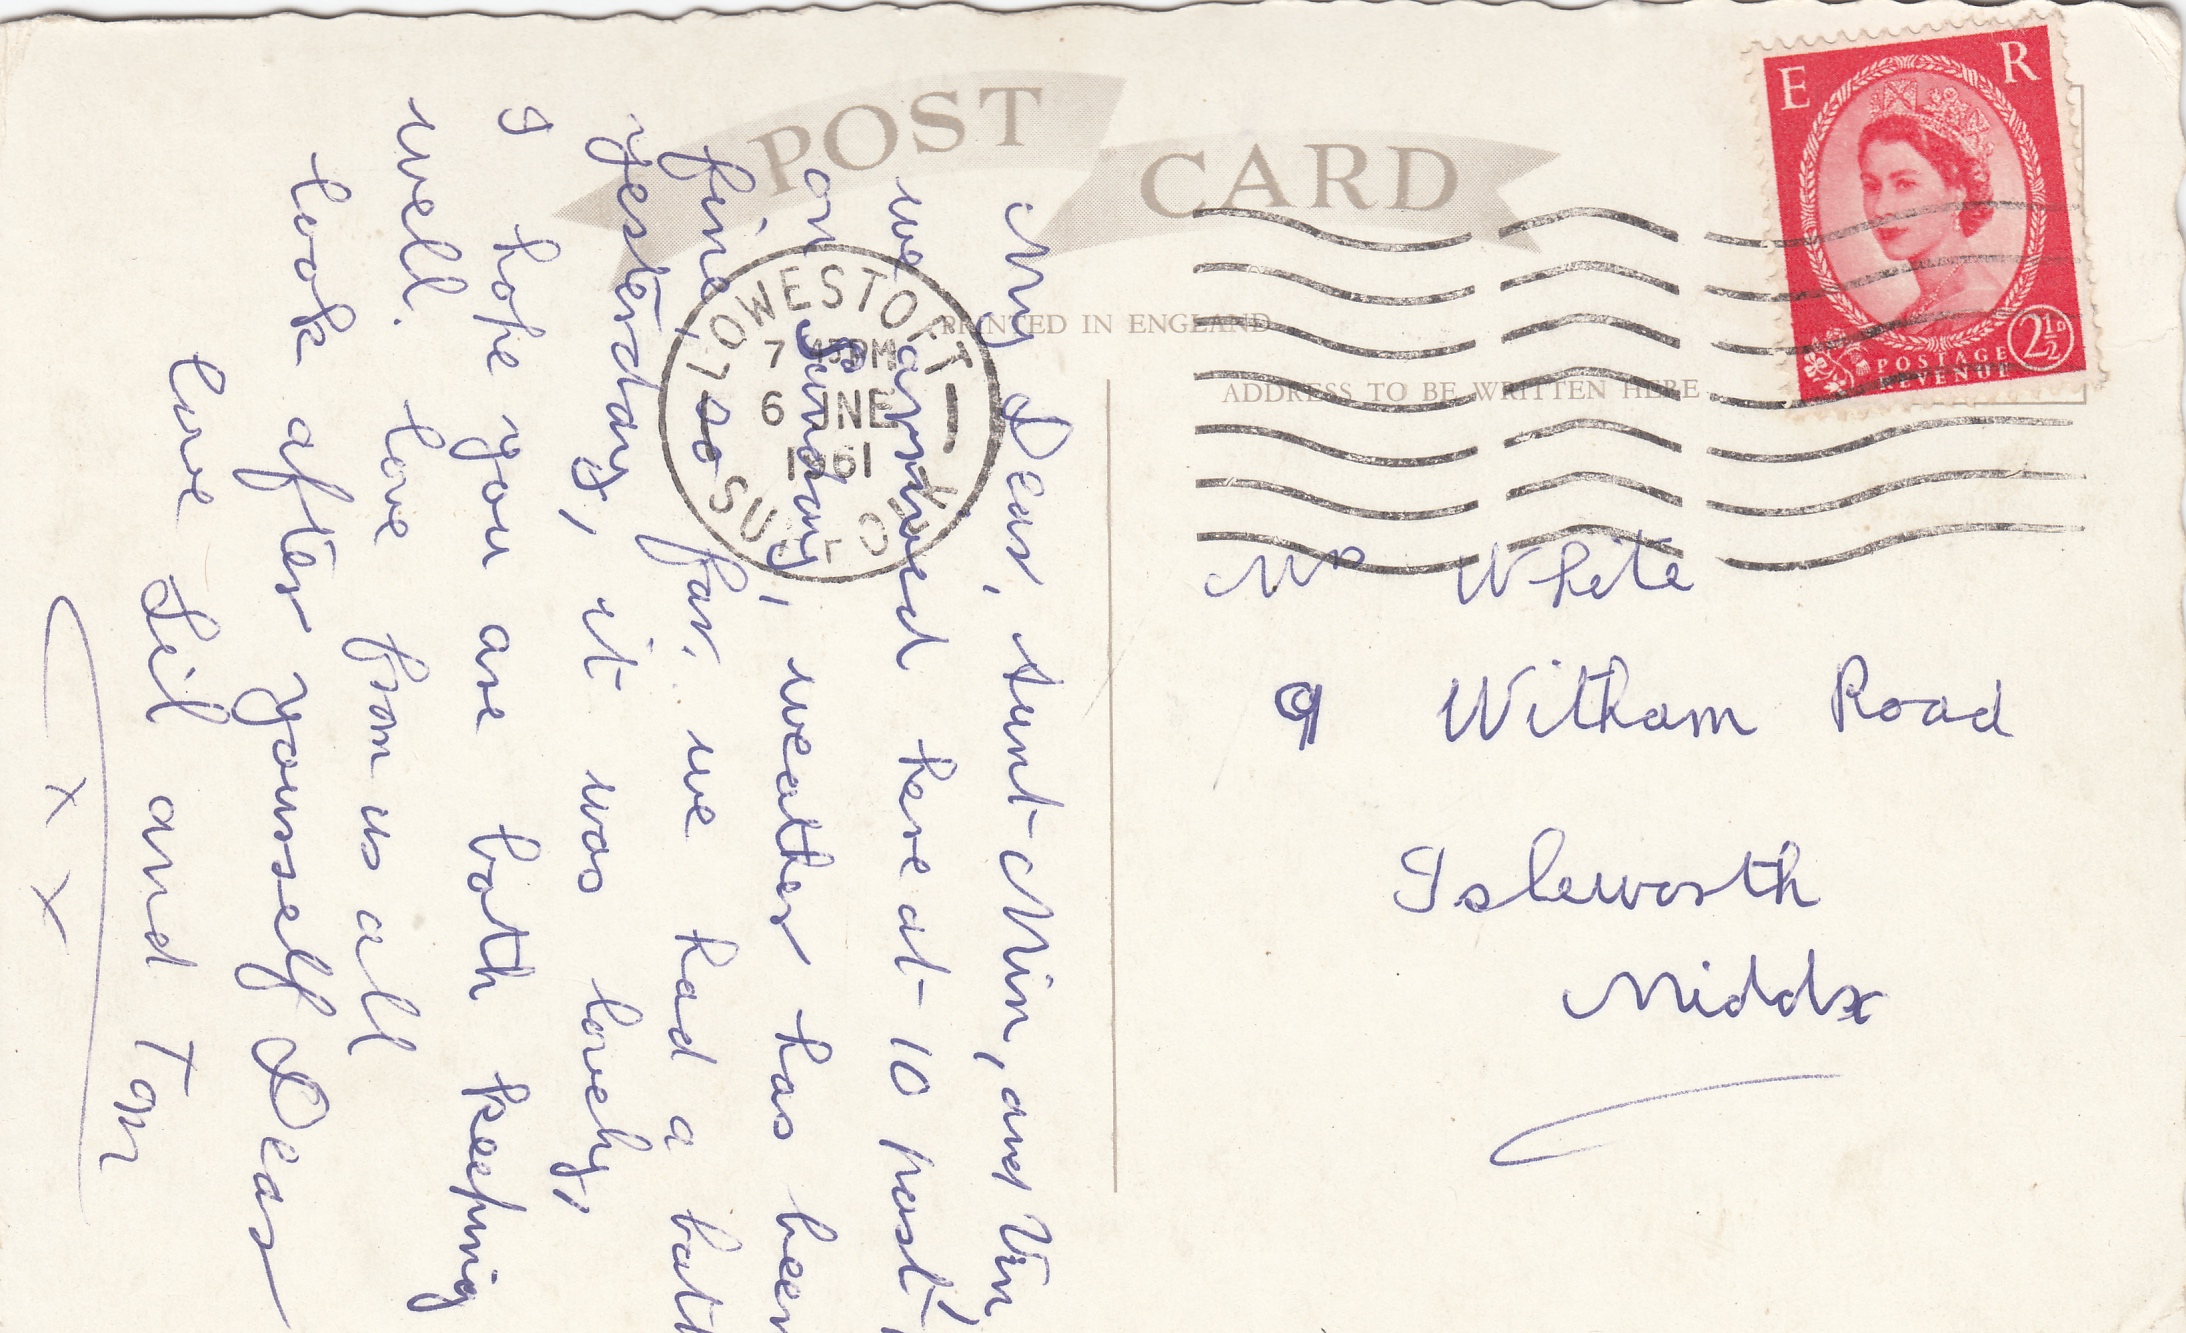 POST CARD
PRINTED IN ENGLAND
ADDRESS TO BE WRITTEN HERE
E R
POSTAGE
REVENUE
2½D
LOWESTOFT
6 JNE
1961
SUFFOLK
Mr White
9 Witham Road
Isleworth
Middx
My Dear, Aunt Min, and Vin
we arrived here at 10 past 1,
on Sunday, weather has been
fine, so far, we had a bath
yesterday, it was lovely,
I hope you are both keeping
well. love from us all
look after yourself Dear
love Lil and Tom
x x